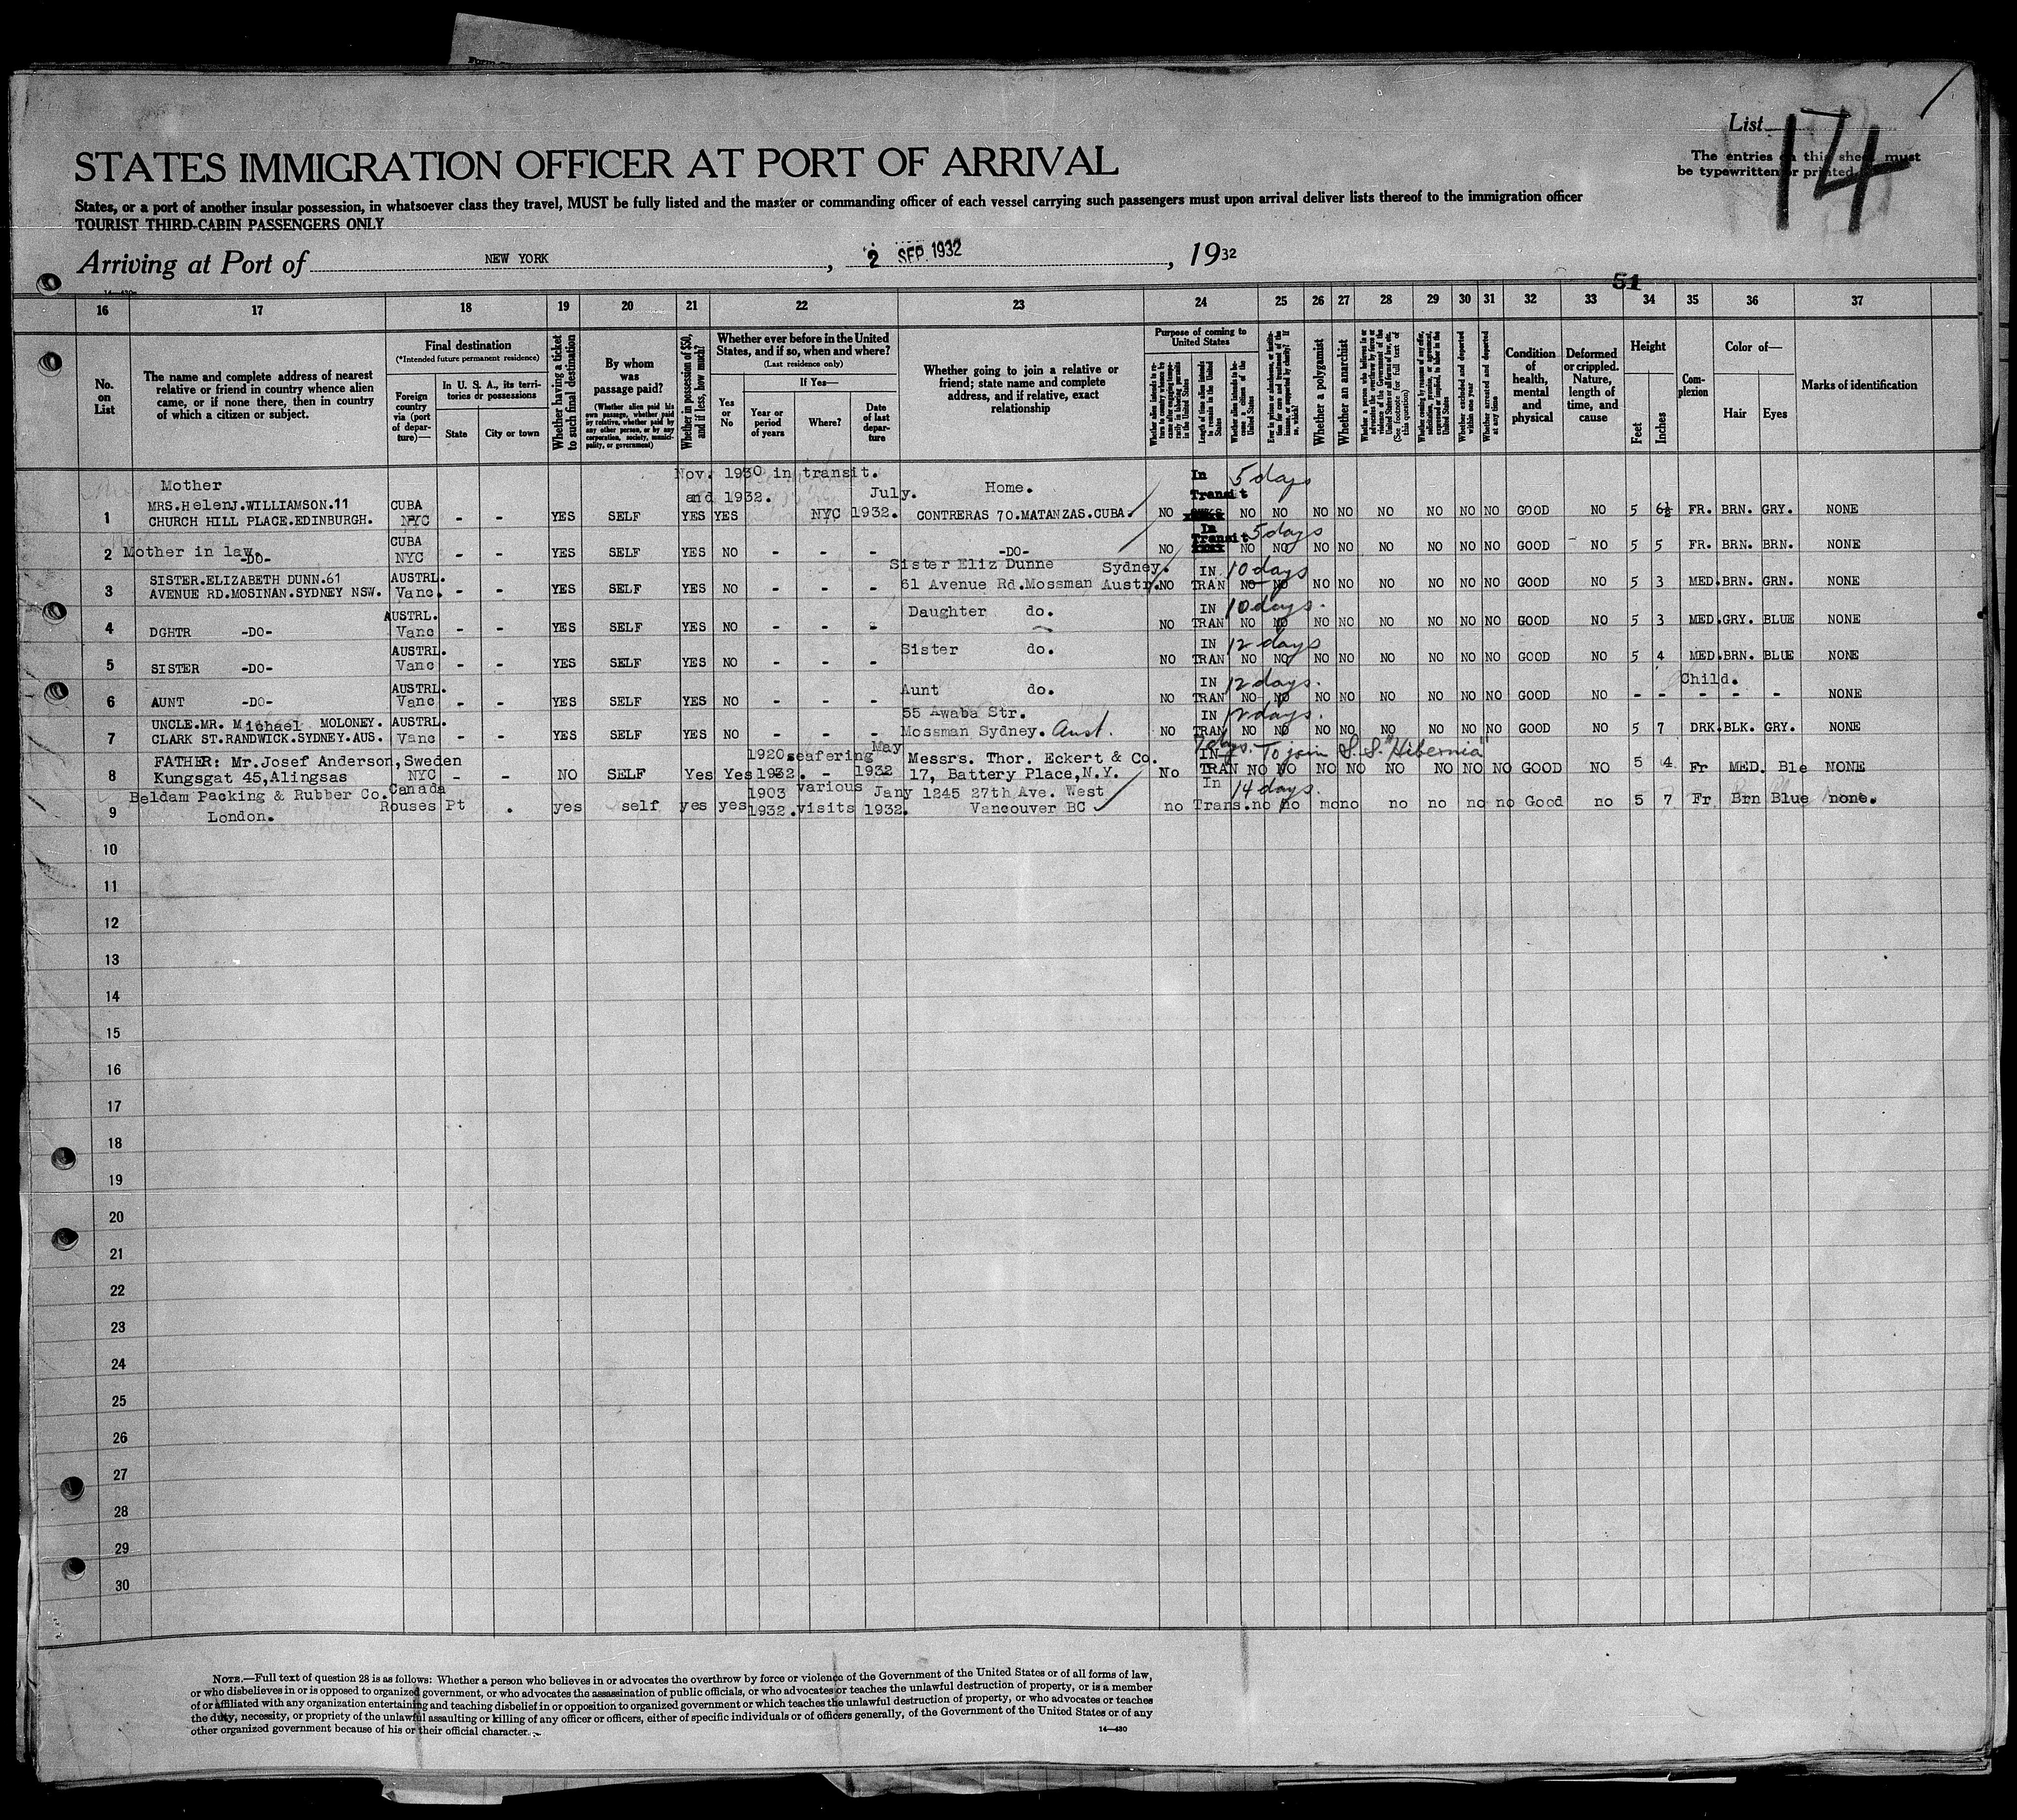 List 14
The entries on this sheet must
be typewritten or printed
STATES IMMIGRATION OFFICER AT PORT OF ARRIVAL
States, or a port of another insular possession, in whatsoever class they travel, MUST be fully listed and the master or commanding officer of each vessel carrying such passengers must upon arrival deliver lists thereof to the immigration officer
TOURIST THIRD-CABIN PASSENGERS ONLY
Arriving at Port of NEW YORK, 2 SEP. 1932, 1932
51
16 17 18 19 20 21 22 23 24 25 26 27 28 29 30 31 32 33 34 35 36 37
No. on List
The name and complete address of nearest relative or friend in country whence alien came, or if none there, then in country of which a citizen or subject.
Final destination
(*Intended future permanent residence)
Foreign country via (port of departure)—
In U. S. A., its territories or possessions
State
City or town
Whether having a ticket to such final destination
By whom was passage paid?
(Whether alien paid his own passage, whether paid by relative, whether paid by any other person, or by any corporation, society, municipality, or government)
Whether in possession of $50, and if less, how much?
Whether ever before in the United States, and if so, when and where?
(Last residence only)
If Yes—
Yes or No
Year or period of years
Where?
Date of last departure
Whether going to join a relative or friend; state name and complete address, and if relative, exact relationship
Purpose of coming to United States
Length of time alien intends to remain in the United States
Whether alien intends to become a citizen of the United States
Whether a polygamist
Whether an anarchist
Whether excluded and deported within one year
Whether arrested and deported at any time
Condition of health, mental and physical
Deformed or crippled. Nature, length of time, and cause
Height
Feet
Inches
Complexion
Color of—
Hair
Eyes
Marks of identification
Nov. 1930 in transit.
Mother and 1932. July. Home. In Transit 5 days
MRS.HelenJ.WILLIAMSON.11 CUBA
1 CHURCH HILL PLACE.EDINBURGH. NYC - - YES SELF YES YES NYC 1932. CONTRERAS 70.MATANZAS.CUBA. NO NO NO NO NO NO NO NO NO GOOD NO 5 6½ FR. BRN. GRY. NONE
CUBA In Transit 5 days
2 Mother in law. -DO- NYC - - YES SELF YES NO - - - -DO- NO NO NO NO NO NO NO NO NO GOOD NO 5 5 FR. BRN. BRN. NONE
Sister Eliz Dunne Sydney.
SISTER.ELIZABETH DUNN.61 AUSTRL. IN 10 days
3 AVENUE RD.MOSINAN.SYDNEY NSW. Vanc. - - YES SELF YES NO - - - 61 Avenue Rd.Mossman Austr. NO TRAN NO NO NO NO NO NO NO NO GOOD NO 5 3 MED. BRN. GRN. NONE
AUSTRL. Daughter do. IN 10 days.
4 DGHTR -DO- Vanc - - YES SELF YES NO - - - NO TRAN NO NO NO NO NO NO NO NO GOOD NO 5 3 MED. GRY. BLUE NONE
AUSTRL. Sister do. IN 12 days
5 SISTER -DO- Vanc - - YES SELF YES NO - - - NO TRAN NO NO NO NO NO NO NO NO GOOD NO 5 4 MED. BRN. BLUE NONE
AUSTRL. Aunt do. IN 12 days. Child.
6 AUNT -DO- Vanc - - YES SELF YES NO - - - NO TRAN NO NO NO NO NO NO NO NO GOOD NO - - - - - NONE
55 Awaba Str.
UNCLE.MR. Michael MOLONEY. AUSTRL. IN 12 days.
7 CLARK ST.RANDWICK.SYDNEY.AUS. Vanc - - YES SELF YES NO - - - Mossman Sydney. Aust. NO TRAN NO NO NO NO NO NO NO NO GOOD NO 5 7 DRK. BLK. GRY. NONE
FATHER: Mr.Josef Anderson,Sweden 1920 seafering May Messrs. Thor. Eckert & Co. IN 7 days. To join S.S. "Hibernia"
8 Kungsgat 45,Alingsas NYC - - NO SELF Yes Yes 1932. - 1932 17, Battery Place,N.Y. No TRAN NO NO NO NO NO NO NO NO GOOD NO 5 4 Fr MED. Ble NONE
Beldam Packing & Rubber Co. Canada 1903 various Jany 1245 27th Ave. West In 14 days.
9 London. Rouses Pt . yes self yes yes 1932. visits 1932. Vancouver BC no Trans. no no mono no no no no Good no 5 7 Fr Brn Blue none.
10
11
12
13
14
15
16
17
18
19
20
21
22
23
24
25
26
27
28
29
30
NOTE.—Full text of question 28 is as follows: Whether a person who believes in or advocates the overthrow by force or violence of the Government of the United States or of all forms of law,
or who disbelieves in or is opposed to organized government, or who advocates the assassination of public officials, or who advocates or teaches the unlawful destruction of property, or is a member
of or affiliated with any organization entertaining and teaching disbelief in or opposition to organized government or which teaches the unlawful destruction of property, or who advocates or teaches
the duty, necessity, or propriety of the unlawful assaulting or killing of any officer or officers, either of specific individuals or of officers generally, of the Government of the United States or of any
other organized government because of his or their official character.
14—430